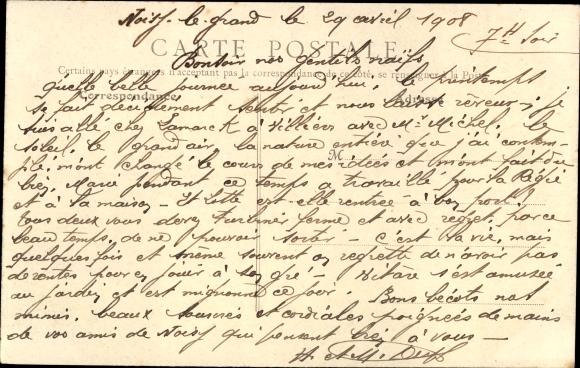 Noisy-le-grand le 29 avril 1908
7 H Soir
CARTE POSTALE
Bonsoir nos gentils
Certains pays étrangers n'acceptant pas la correspondance de ce côté, se renseigner à la Poste
quelle belle journée aujourd'hui, le printemps
Correspondance
Adresse
se fait décidément sentir et nous laisse rêveur, je
suis allé chez Lamarck à Villiers avec Mr Michel, le
soleil, le grand air, la nature entière que j'ai contem-
M
plé, m'ont changé le cours de mes idées et m'ont fait du
bien, Marie pendant ce temps a travaillé pour la Régie
et à la maison - et est-elle rentrée à bon port.
Tous deux vous devez turbiner ferme et avec regret, par ce
beau temps, de ne pouvoir sortir - c'est la vie, mais
quelquefois et même souvent on regrette de n'avoir pas
de rentes pour en jouir à son gré - s'est amusée
au jardin et est mignonne ce soir. Bons bécots nos
minis, beaux sourires et cordiales poignées de mains
de vos amis de Noisy qui pensent bien à vous -
H et M.